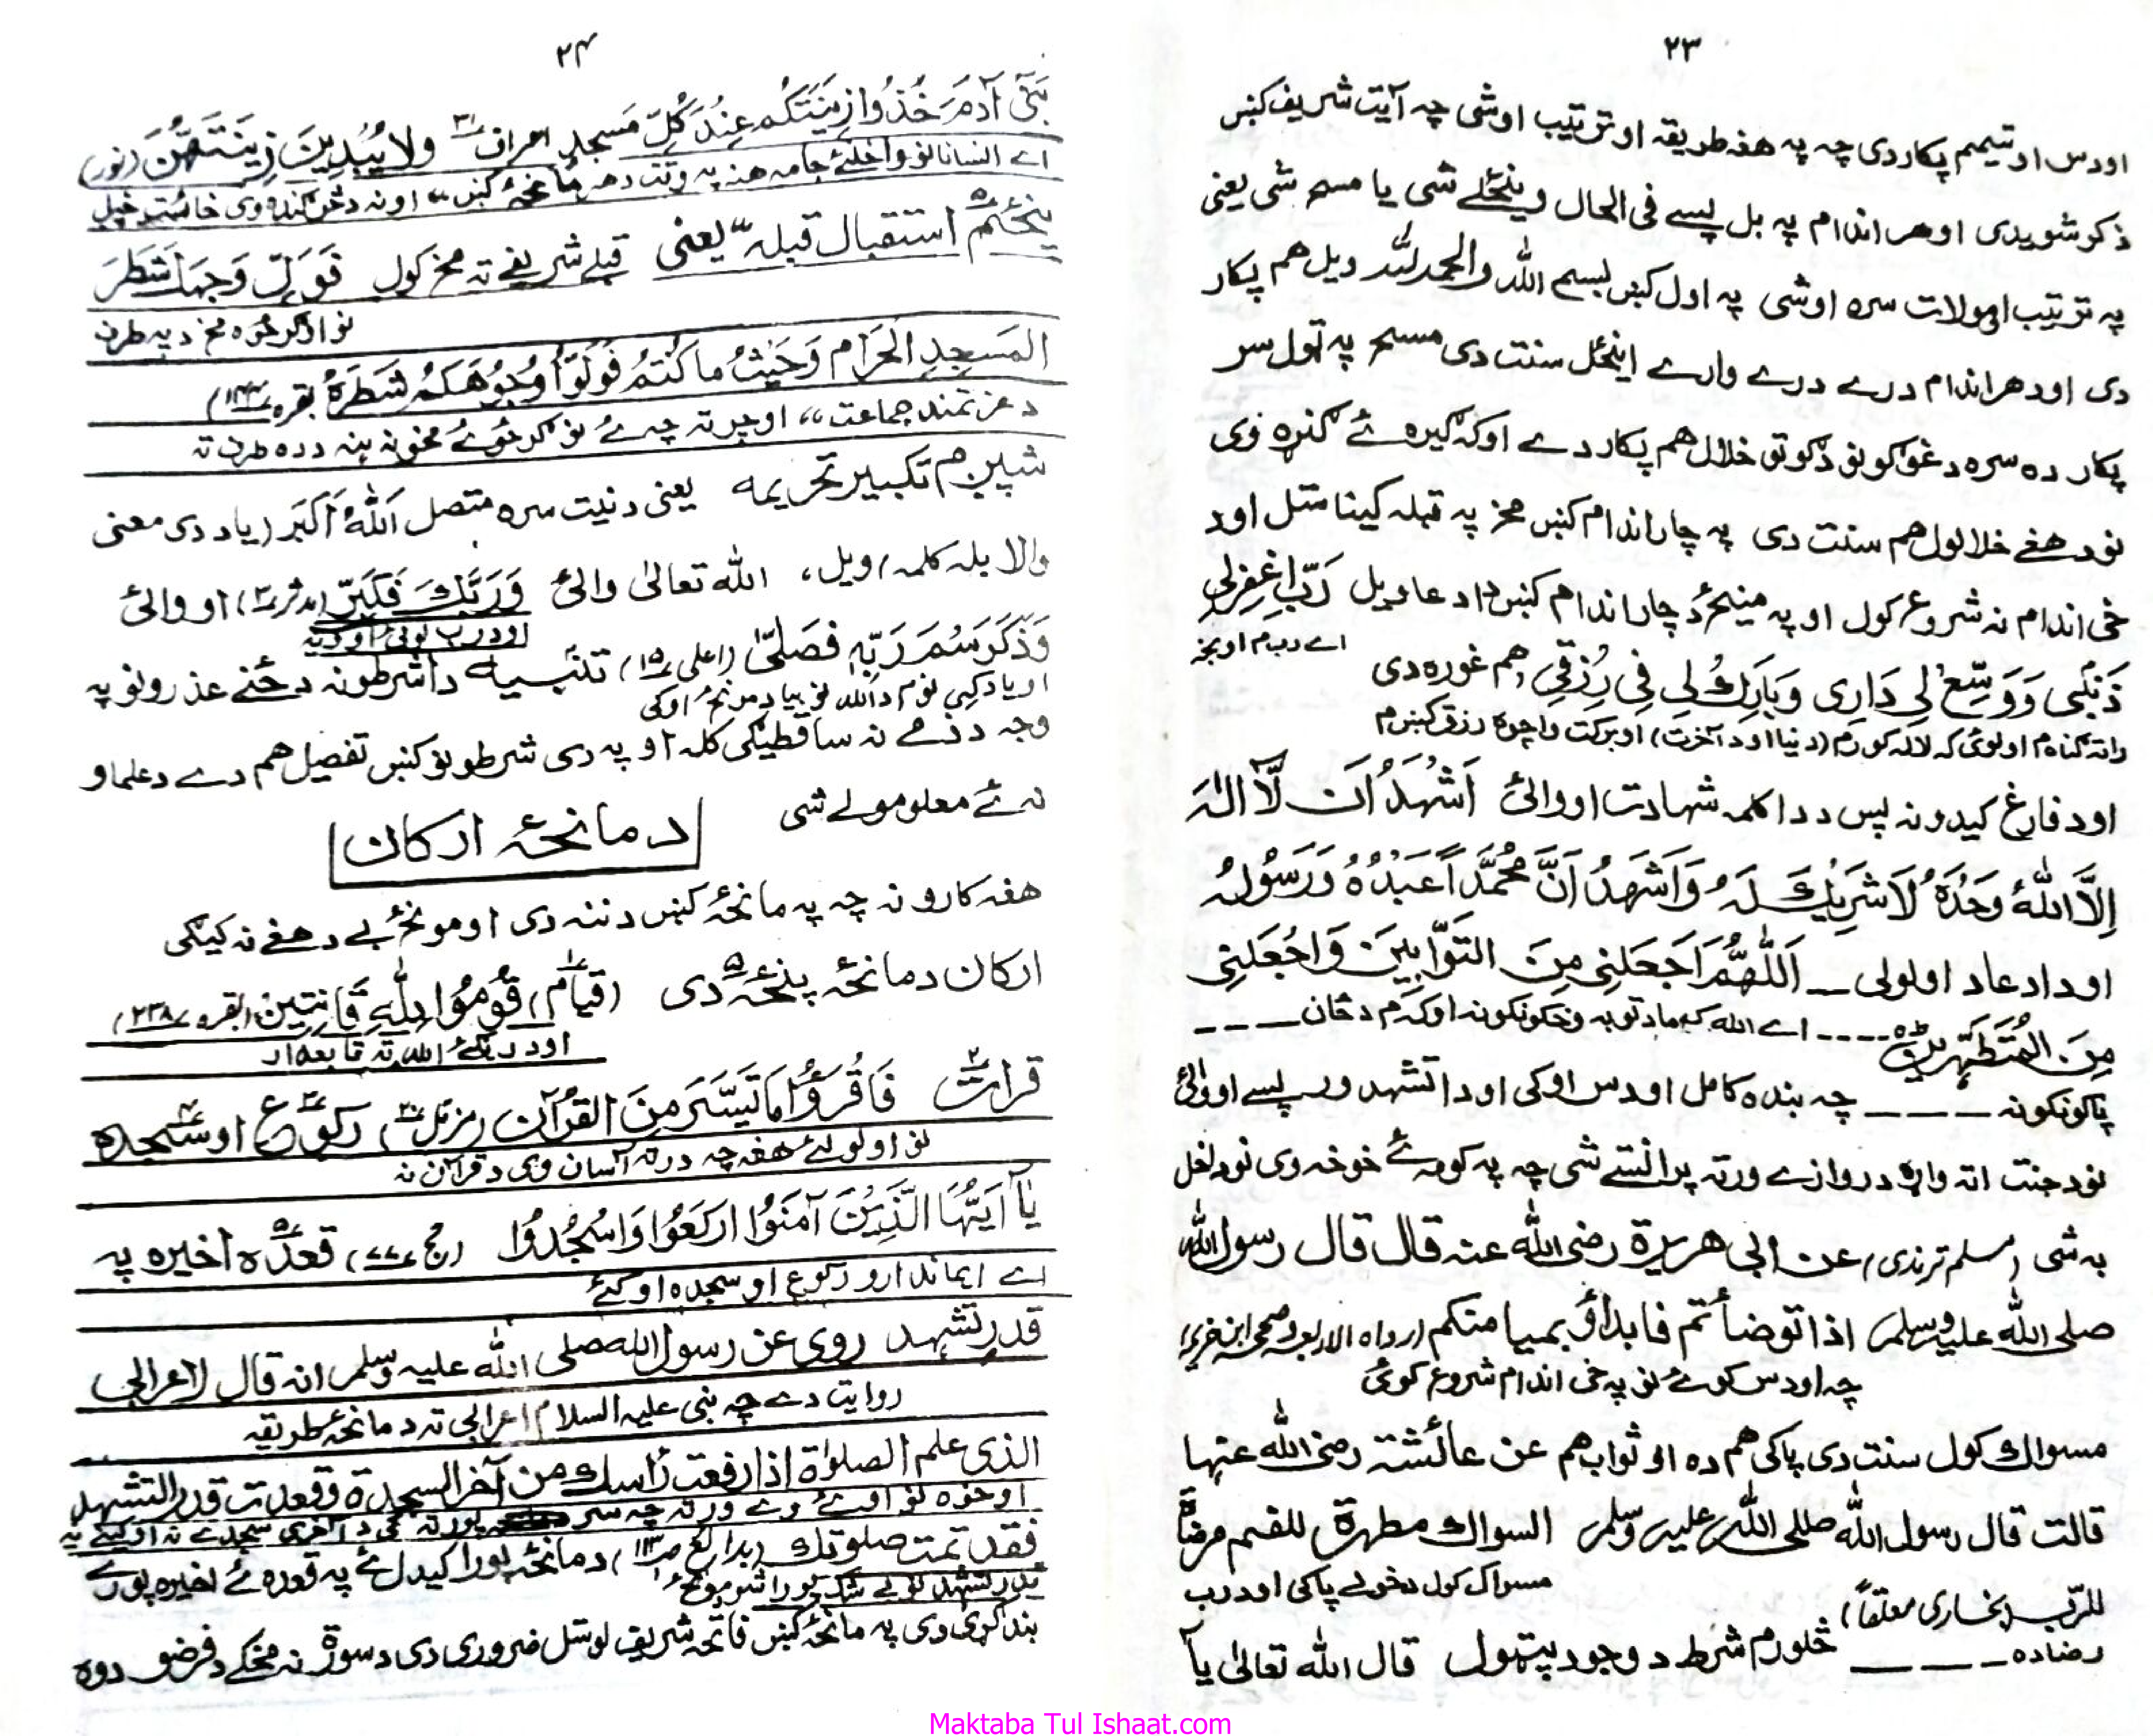 ٢٣
اودس او تیمم پکار دی چه په هغه طریقه او ترتیب اوشی چه آیت شریف کښ
ذکر شویدی او هر اندام په بل پسے فی الحال وینځلے شی یا مسح شی یعنی
په ترتیب او مولات سره اوشی په اول کښ بسم الله والحمد لله ویل هم پکار
دی او هر اندام درے درے وارے اینځل سنت دی مسح په ټول سر
پکار ده سره د غوګونو د ګوتو خلال هم پکار دے او که ګیره ئے ګنړه وی
نو د هغے خلالول هم سنت دی په چار اندام کښ مخ په قبله کیناستل او د
ښی اندام نه شروع کول او په مینځ د چار اندام کښ دا دعا ویل رَبِّ اغْفِرْلِی
اے ربه م اوبخه
ذَنْۢبِی وَوَسِّعْ لِی دَارِی وَبَارِكْ لِی فِی رِزْقِی هم غوره دی
راته ګناه م او لوئ که لاله کور م (دنیا او د آخرت) او برکت واچوه رزق کښ م
او د فارغ کیدو نه پس د دا کلمه شهادت اووائی اَشْهَدُ اَن لَّا اِلٰهَ
اِلَّا اللهُ وَحْدَهٗ لَا شَرِیْكَ لَهٗ وَاَشْهَدُ اَنَّ مُحَمَّدًا عَبْدُهٗ وَرَسُولُهٗ
او دا دعا د اولولی ــ اَللّٰهُمَّ اجْعَلْنِی مِنَ التَّوَّابِیْنَ وَاجْعَلْنِی
مِنَ الْمُتَطَهِّرِیْنَ ---- اے الله که ما د توبه ښکونکو نه او که م د ځان ----
پاکونکو نه ---- چه بنده کامل اودس اوکی او دا تشهد ورپسے اووائی
نو د جنت اته واړه دروازے ورته پرانستے شی چه په کومه ئے خوښه وی نو داخل
به شی (مسلم ترمذی) عن ابی هریرة رضی الله عنه قال قال رسول الله
صلی الله علیه وسلم اذا توضأتم فابدأؤ بمیامنکم (رواه الاربعه وصححه ابن خزیمه)
چه اودس کوئے نو په ښی اندام شروع کوئ
مسواك کول سنت دی پاکی هم ده او ثواب هم عن عائشة رضی الله عنها
قالت قال رسول الله صلی الله علیه وسلم السواك مطهرة للفم مرضاة
مسواک کول د خولے پاکی او د رب
للرّب (بخاری معلقاً) څلورم شرط د وجود پټول قال الله تعالیٰ یآ
رضا ده ----
٢٤
بَنِی آدَمَ خُذُوا زِینَتَکُمْ عِنْدَ کُلِّ مَسجِدٍ اعراف ٣١ ولا یُبْدِیْنَ زِینَتَهُنَّ (نور)
اے انسانانو واخلئ جامه هغه په وقت د هر مانځه کښ ،، او نه د ښکاره وی خائست خپل
پنځم استقبال قبله" یعنی قبلے شریفے ته مخ کول فَوَلِّ وَجْهَكَ شَطْرَ
نو اوګرځوه مخ د په طرف
المَسجِدِ الحَرَام وَحَیْثُ ما کُنْتُمْ فَوَلُّوْا وُجُوْهَکُمْ شَطْرَهٗ بقره (١٤٤)
د عزتمند جماعت ،، او چرته چه ئے نو ګرځوئے مخونه په د ده طرف ته
شپږم تکبیر تحریمه یعنی د نیت سره متصل اَللهُ اَکْبَر (یا د دی معنی
والا بله کلمه) ویل، الله تعالیٰ وائی وَرَبَّكَ فَکَبِّرْ (مدثر ٣) او وائی
او د رب لوئی اووایه
وَذَکَرَسْمَ رَبِّهٖ فصَلّیٰ (اعلی ١٥) تنبیه دا شرطونه د ځنے عذرونو په
او یاد کړی نوم د الله نو بیا د مونځ اوکی
وجه د ذمے نه ساقطیګی کله او په دی شرطونو کښ تفصیل هم دے د علماو
نه ئے معلومولے شی
د مانځه ارکان
هغه کارونه چه په مانځه کښ دننه دی او مونځ بے د هغے نه کیګی
ارکان د مانځه پنځه دی (قیام) قُوْمُوْا لِلّٰهِ قَانِتِین (بقره ٢٣٨)
او دریګئے الله ته تابعدار
قرات فَاقْرَؤُا مَا تَیَسَّرَ مِنَ القُرْآن (مزمل ٢٠) رکوع او سجده
نو اولولئے هغه چه درته آسان وی د قرآن نه
یَآ اَیُّهَا الَّذِیْنَ آمَنُوْا ارْکَعُوْا وَاسْجُدُوْا (حج ٧٧) قعده اخیره په
اے ایماندارو رکوع او سجده اوکئے
قدر تشهد روی عن رسول الله صلی الله علیه وسلم انه قال لاعرابی
روایت دے چه نبی علیه السلام اعرابی ته د مانځه طریقه
الذی علم الصلوٰة اذا رفعت رأسك من آخر السجدة وقعدت قدر التشهد
او ښوه نو اوئے وے ورته چه سر پورته کی د آخری سجدے نه او کینے په
فقد تمت صلوتك (بدائع ص ١١٣) د مانځه پورا کیدل ئے په قعده ئے اخیره پورے
قدر تشهد نو بے شکه پورا شو مونځ
بند کړی دی په مانځه کښ فاتحه شریف لوستل ضروری دی د سورة نه مخکے د فرضو دوه
Maktaba Tul Ishaat.com